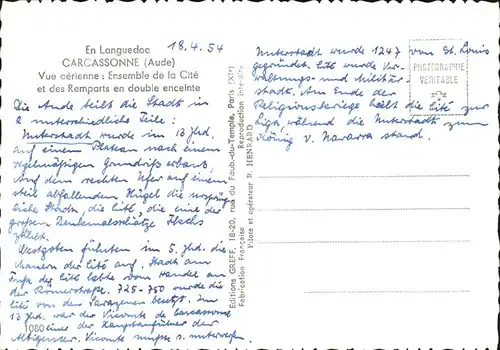 En Languedoc
18.4.54
CARCASSONNE (Aude)
Vue aérienne : Ensemble de la Cité
et des Remparts en double enceinte
Die Aude teilt die Stadt in
2 unterschiedliche Teile:
Unterstadt wurde im 13 Jhd.
auf einem Plateau nach einem
regelmäßigen Grundriß erbaut,
Auf dem rechten Ufer auf einem
steil abfallenden Hügel die ursprüng
liche Stadt, die Cité, die eine der
großen Denkmalsschätze
zählt.
Westgoten führten im 5. Jhd. die
Mauern der Cité auf. Stadt am
Fuße der Cité lebte vom Handel an
der Römerstraße. 725-750 wurde die
Cité von den Sarazenen besetzt. Im
13 Jhd. war der Vicomte de Carcassonne
1080
einer der Hauptanführer der
Albigenser. Vicomte mußte s. unterwerfen.
Editions GREFF, 18-20, rue du Faub.-du-Temple, Paris (XIe)
Fabrication Française
Reproduction interdite
Pilote et opérateur R. HENRARD
Unterstadt wurde 1247 von St. Louis
gegründet. Cité wurde Ver-
waltungs- und Militär-
stadt. Am Ende der
Religionskriege hält die Cité zur
Liga, während die Unterstadt zum
König v. Navarra stand.
PHOTOGRAPHIE
VERITABLE